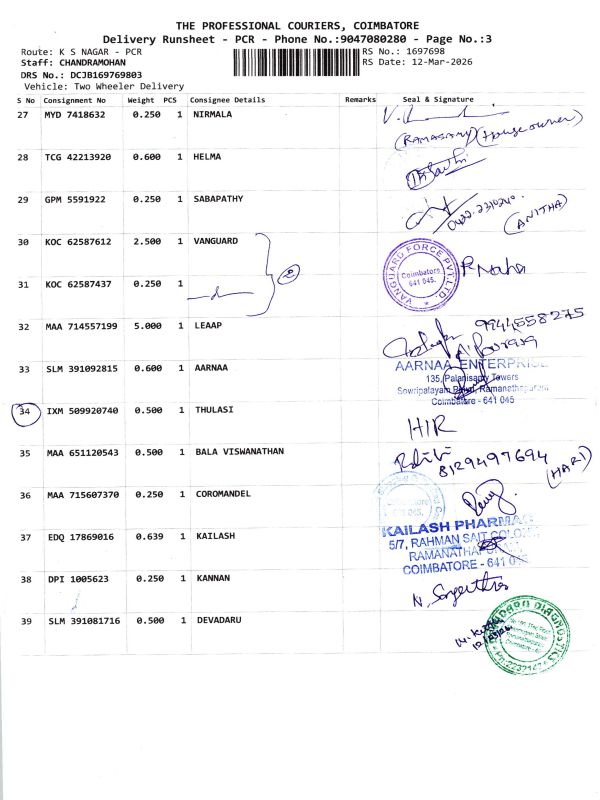 THE PROFESSIONAL COURIERS, COIMBATORE
Delivery Runsheet - PCR - Phone No.:9047080280 - Page No.:3
Route: K S NAGAR - PCR
RS No.: 1697698
Staff: CHANDRAMOHAN
RS Date: 12-Mar-2026
DRS No.: DCJB169769803
Vehicle: Two Wheeler Delivery
S No Consignment No Weight PCS Consignee Details Remarks Seal & Signature
27 MYD 7418632 0.250 1 NIRMALA
(RAMASAMY) (House owner)
28 TCG 42213920 0.600 1 HELMA
29 GPM 5591922 0.250 1 SABAPATHY
0422-2310240
(ANITHA)
30 KOC 62587612 2.500 1 VANGUARD
VANGUARD FORCE PVT.LTD.
Coimbatore
641 045.
31 KOC 62587437 0.250 1
32 MAA 714557199 5.000 1 LEAAP
9944558275
33 SLM 391092815 0.600 1 AARNAA
AARNAA ENTERPRISE
135, Palanisamy Towers
Sowripalayam Ramanathapuram
Coimbatore - 641 045
34 IXM 509920740 0.500 1 THULASI
HIR
35 MAA 651120543 0.500 1 BALA VISWANATHAN
8129497694
(HARI)
36 MAA 715607370 0.250 1 COROMANDEL
37 EDQ 17869016 0.639 1 KAILASH
KAILASH PHARMA
5/7, RAHMAN SAIT COLONY
RAMANATHAPURAM
COIMBATORE - 641 045
38 DPI 1005623 0.250 1 KANNAN
39 SLM 391081716 0.500 1 DEVADARU
DIAGNOSTICS